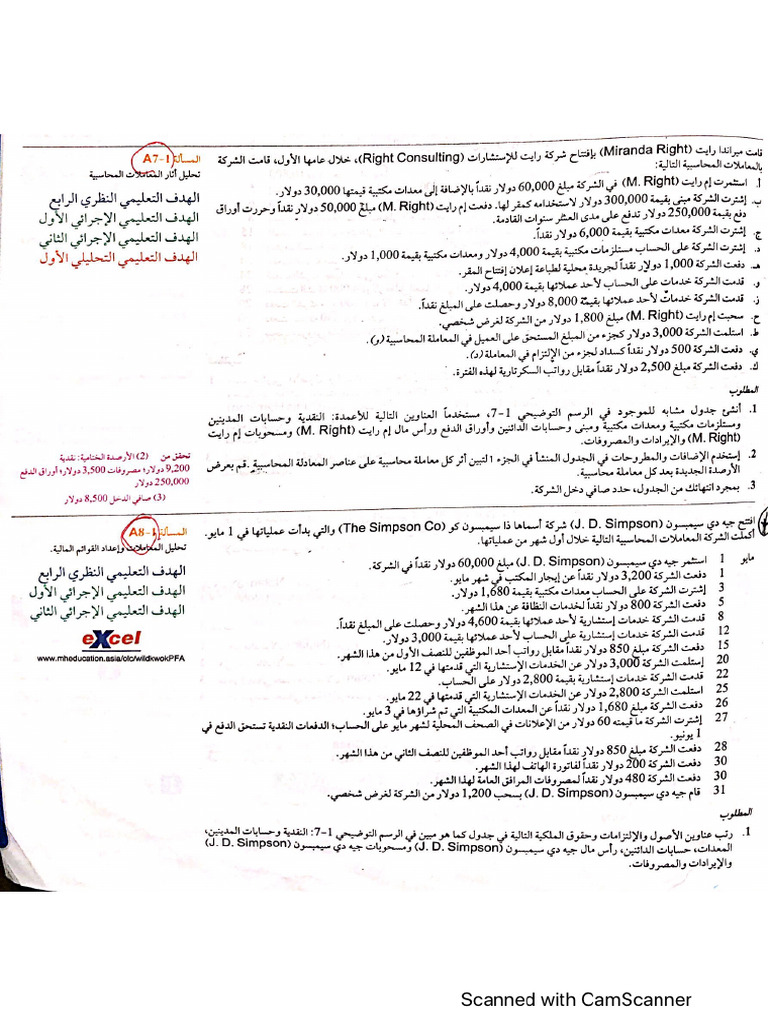 قامت ميراندا رايت (Miranda Right) بإفتتاح شركة رايت للإستشارات (Right Consulting)، خلال عامها الأول، قامت الشركة
بالمعاملات المحاسبية التالية:
أ. استثمرت إم رايت (M. Right) في الشركة مبلغ 60,000 دولار نقداً بالإضافة إلى معدات مكتبية قيمتها 30,000 دولار.
ب. إشترت الشركة مبنى بقيمة 300,000 دولار لاستخدامه كمقر لها. دفعت إم رايت (M. Right) مبلغ 50,000 دولار نقداً وحررت أوراق
دفع بقيمة 250,000 دولار تدفع على مدى العشر سنوات القادمة.
ج. إشترت الشركة معدات مكتبية بقيمة 6,000 دولار نقداً.
د. إشترت الشركة على الحساب مستلزمات مكتبية بقيمة 4,000 دولار ومعدات مكتبية بقيمة 1,000 دولار.
هـ. دفعت الشركة 1,000 دولار نقداً لجريدة محلية لطباعة إعلان إفتتاح المقر.
و. قدمت الشركة خدمات على الحساب لأحد عملائها بقيمة 4,000 دولار.
ز. قدمت الشركة خدمات لأحد عملائها بقيمة 8,000 دولار وحصلت على المبلغ نقداً.
ح. سحبت إم رايت (M. Right) مبلغ 1,800 دولار من الشركة لغرض شخصي.
ط. استلمت الشركة 3,000 دولار كجزء من المبلغ المستحق على العميل في المعاملة المحاسبية (و).
ي. دفعت الشركة 500 دولار نقداً كسداد لجزء من الإلتزام في المعاملة (د).
ك. دفعت الشركة مبلغ 2,500 دولار نقداً مقابل رواتب السكرتارية لهذه الفترة.
المطلوب
1. أنشئ جدول مشابه للموجود في الرسم التوضيحي 1-7، مستخدماً العناوين التالية للأعمدة: النقدية وحسابات المدينين
ومستلزمات مكتبية ومعدات مكتبية ومبنى وحسابات الدائنين وأوراق الدفع ورأس مال إم رايت (M. Right) ومسحوبات إم رايت
(M. Right) والإيرادات والمصروفات.
2. إستخدم الإضافات والمطروحات في الجدول المنشأ في الجزء 1 لتبين أثر كل معاملة محاسبية على عناصر المعادلة المحاسبية. قم بعرض
الأرصدة الجديدة بعد كل معاملة محاسبية.
3. بمجرد انتهائك من الجدول، حدد صافي دخل الشركة.
المسألة A7-1
تحليل آثار المعاملات المحاسبية
الهدف التعليمي النظري الرابع
الهدف التعليمي الإجرائي الأول
الهدف التعليمي الإجرائي الثاني
الهدف التعليمي التحليلي الأول
تحقق من (2) الأرصدة الختامية: نقدية
9,200 دولار؛ مصروفات 3,500 دولار؛ أوراق الدفع
250,000 دولار
(3) صافي الدخل 8,500 دولار
افتتح جيه دي سيمبسون (J. D. Simpson) شركة أسماها ذا سيمبسون كو (The Simpson Co) والتي بدأت عملياتها في 1 مايو.
أكملت الشركة المعاملات المحاسبية التالية خلال أول شهر من عملياتها.
مايو 1 استثمر جيه دي سيمبسون (J. D. Simpson) مبلغ 60,000 دولار نقداً في الشركة.
1 دفعت الشركة 3,200 دولار نقداً عن إيجار المكتب في شهر مايو.
3 إشترت الشركة على الحساب معدات مكتبية بقيمة 1,680 دولار.
5 دفعت الشركة 800 دولار نقداً لخدمات النظافة عن هذا الشهر.
8 قدمت الشركة خدمات إستشارية لأحد عملائها بقيمة 4,600 دولار وحصلت على المبلغ نقداً.
12 قدمت الشركة خدمات إستشارية على الحساب لأحد عملائها بقيمة 3,000 دولار.
15 دفعت الشركة مبلغ 850 دولار نقداً مقابل رواتب أحد الموظفين للنصف الأول من هذا الشهر.
20 إستلمت الشركة 3,000 دولار عن الخدمات الإستشارية التي قدمتها في 12 مايو.
22 قدمت الشركة خدمات إستشارية بقيمة 2,800 دولار على الحساب.
25 استلمت الشركة 2,800 دولار عن الخدمات الإستشارية التي قدمتها في 22 مايو.
26 دفعت الشركة مبلغ 1,680 دولار نقداً عن المعدات المكتبية التي تم شراؤها في 3 مايو.
27 إشترت الشركة ما قيمته 60 دولار من الإعلانات في الصحف المحلية لشهر مايو على الحساب؛ الدفعات النقدية تستحق الدفع في
1 يونيو.
28 دفعت الشركة مبلغ 850 دولار نقداً مقابل رواتب أحد الموظفين للنصف الثاني من هذا الشهر.
30 دفعت الشركة 200 دولار نقداً لفاتورة الهاتف لهذا الشهر.
30 دفعت الشركة 480 دولار نقداً لمصروفات المرافق العامة لهذا الشهر.
31 قام جيه دي سيمبسون (J. D. Simpson) بسحب 1,200 دولار من الشركة لغرض شخصي.
المطلوب
1. رتب عناوين الأصول والإلتزامات وحقوق الملكية التالية في جدول كما هو مبين في الرسم التوضيحي 1-7: النقدية وحسابات المدينين،
المعدات، حسابات الدائنين، رأس مال جيه دي سيمبسون (J. D. Simpson) ومسحوبات جيه دي سيمبسون (J. D. Simpson)
والإيرادات والمصروفات.
المسألة A8-1
تحليل المعاملات وإعداد القوائم المالية.
الهدف التعليمي النظري الرابع
الهدف التعليمي الإجرائي الأول
الهدف التعليمي الإجرائي الثاني
eXcel
www.mheducation.asia/olc/wildkwokPFA
Scanned with CamScanner